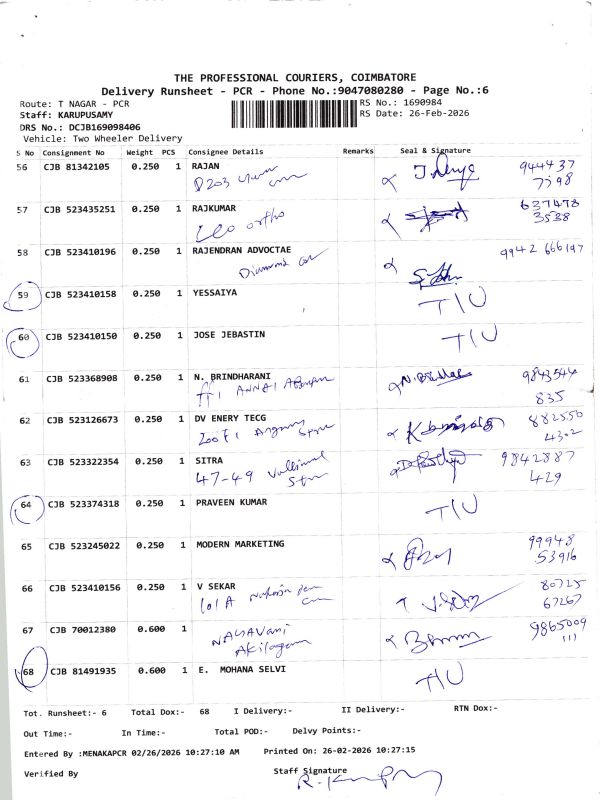 THE PROFESSIONAL COURIERS, COIMBATORE
Delivery Runsheet - PCR - Phone No.:9047080280 - Page No.:6
Route: T NAGAR - PCR
RS No.: 1690984
Staff: KARUPUSAMY
RS Date: 26-Feb-2026
DRS No.: DCJB169098406
Vehicle: Two Wheeler Delivery
S No Consignment No Weight PCS Consignee Details Remarks Seal & Signature
56 CJB 81342105 0.250 1 RAJAN 944437
D203 7398
57 CJB 523435251 0.250 1 RAJKUMAR 637478
Leo ortho 3538
58 CJB 523410196 0.250 1 RAJENDRAN ADVOCTAE 9942 666197
Diamond
59 CJB 523410158 0.250 1 YESSAIYA T/U
60 CJB 523410150 0.250 1 JOSE JEBASTIN T/U
61 CJB 523368908 0.250 1 N. BRINDHARANI 9843544
ff1 ANNAI 835
62 CJB 523126673 0.250 1 DV ENERY TECG 882550
4302
63 CJB 523322354 0.250 1 SITRA 9842887
47-49 429
64 CJB 523374318 0.250 1 PRAVEEN KUMAR T/U
65 CJB 523245022 0.250 1 MODERN MARKETING 99948
53916
66 CJB 523410156 0.250 1 V SEKAR 80725
101 A 67267
67 CJB 70012380 0.600 1 9865009
Akilagam 111
68 CJB 81491935 0.600 1 E. MOHANA SELVI T/U
Tot. Runsheet:- 6 Total Dox:- 68 I Delivery:- II Delivery:- RTN Dox:-
Out Time:- In Time:- Total POD:- Delvy Points:-
Entered By :MENAKAPCR 02/26/2026 10:27:10 AM Printed On: 26-02-2026 10:27:15
Verified By Staff Signature